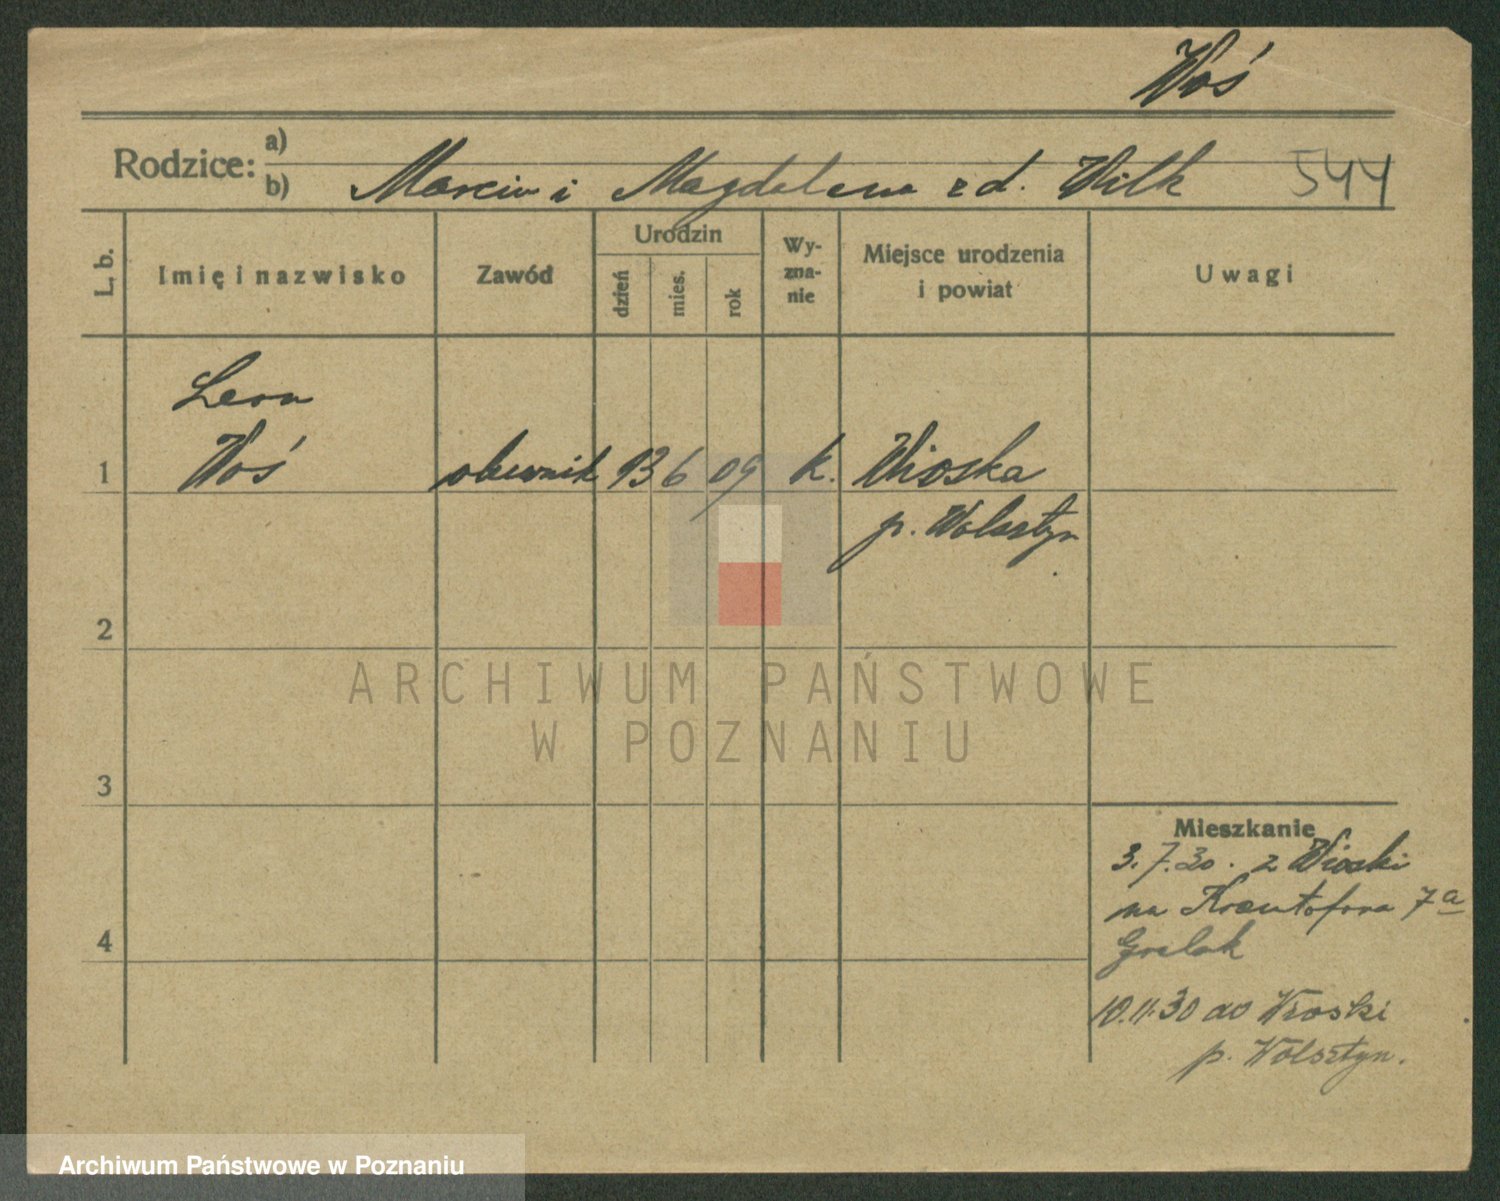 Woś
Rodzice: a)
b) Marcin i Magdalena z d. Wilk 544
L. b. Imię i nazwisko Zawód Urodzin dzień mies. rok Wy-zna-nie Miejsce urodzenia i powiat Uwagi
Leon
1 Woś obuwnik 13 6 09 k. Wioska
p. Wolsztyn
2
ARCHIWUM PAŃSTWOWE
W POZNANIU
3
Mieszkanie
3.7.30. z Wioski
na 7a
4 Gralak
10.11.30 do Wioski
p. Wolsztyn.
Archiwum Państwowe w Poznaniu